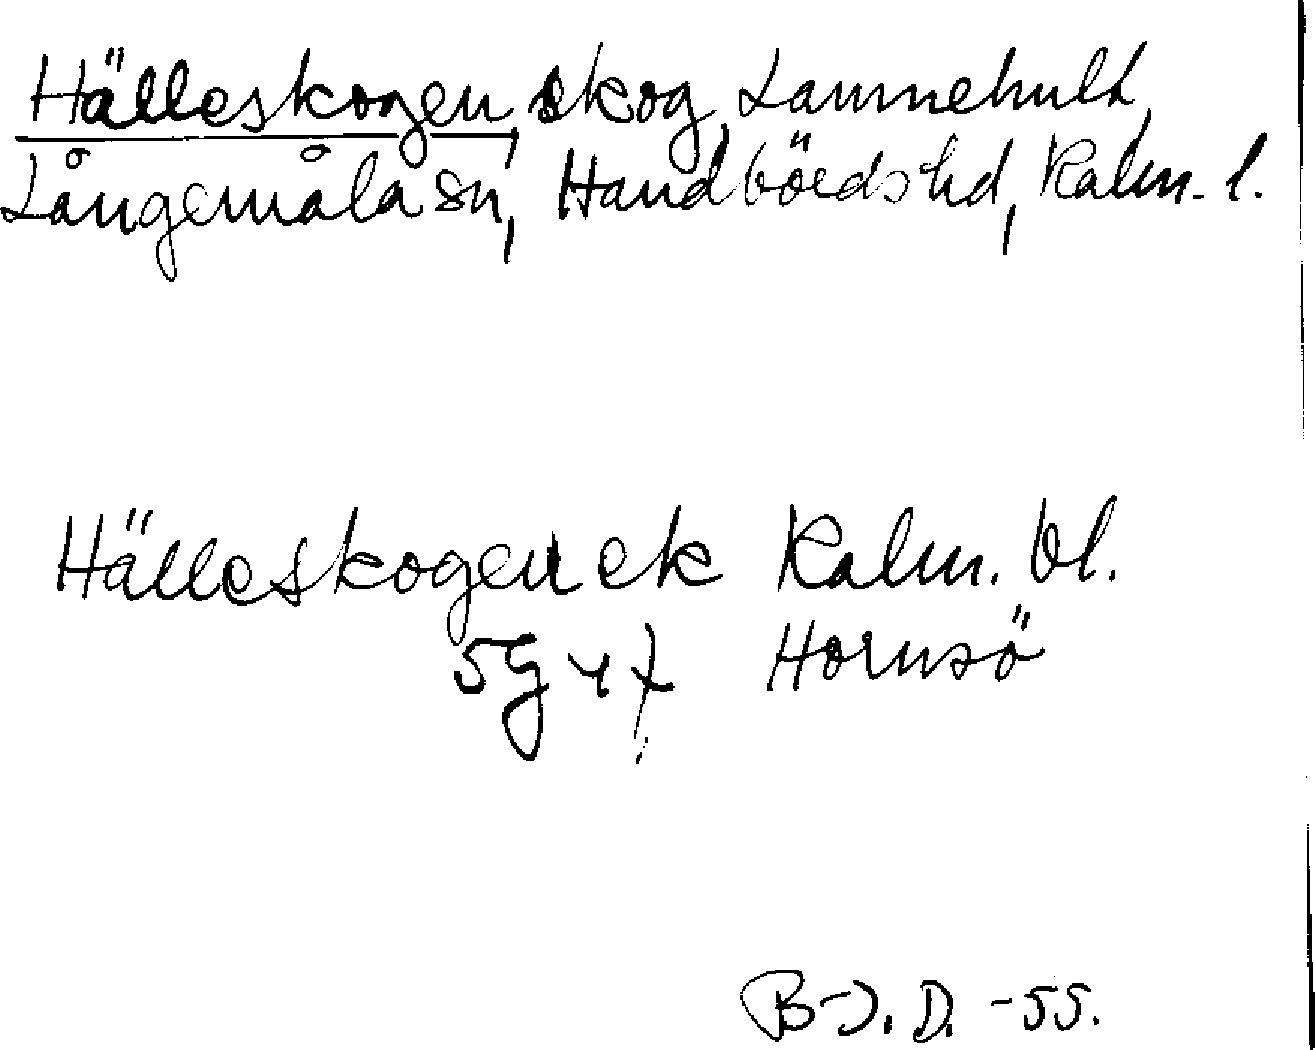 Hälleskogen, skog, Lammehult,
Långemåla sn, Handbörds hd, Kalm. l.
Hälleskogen ek Kalm. bl.
5g4f Hornsö
B-J. D. -55.